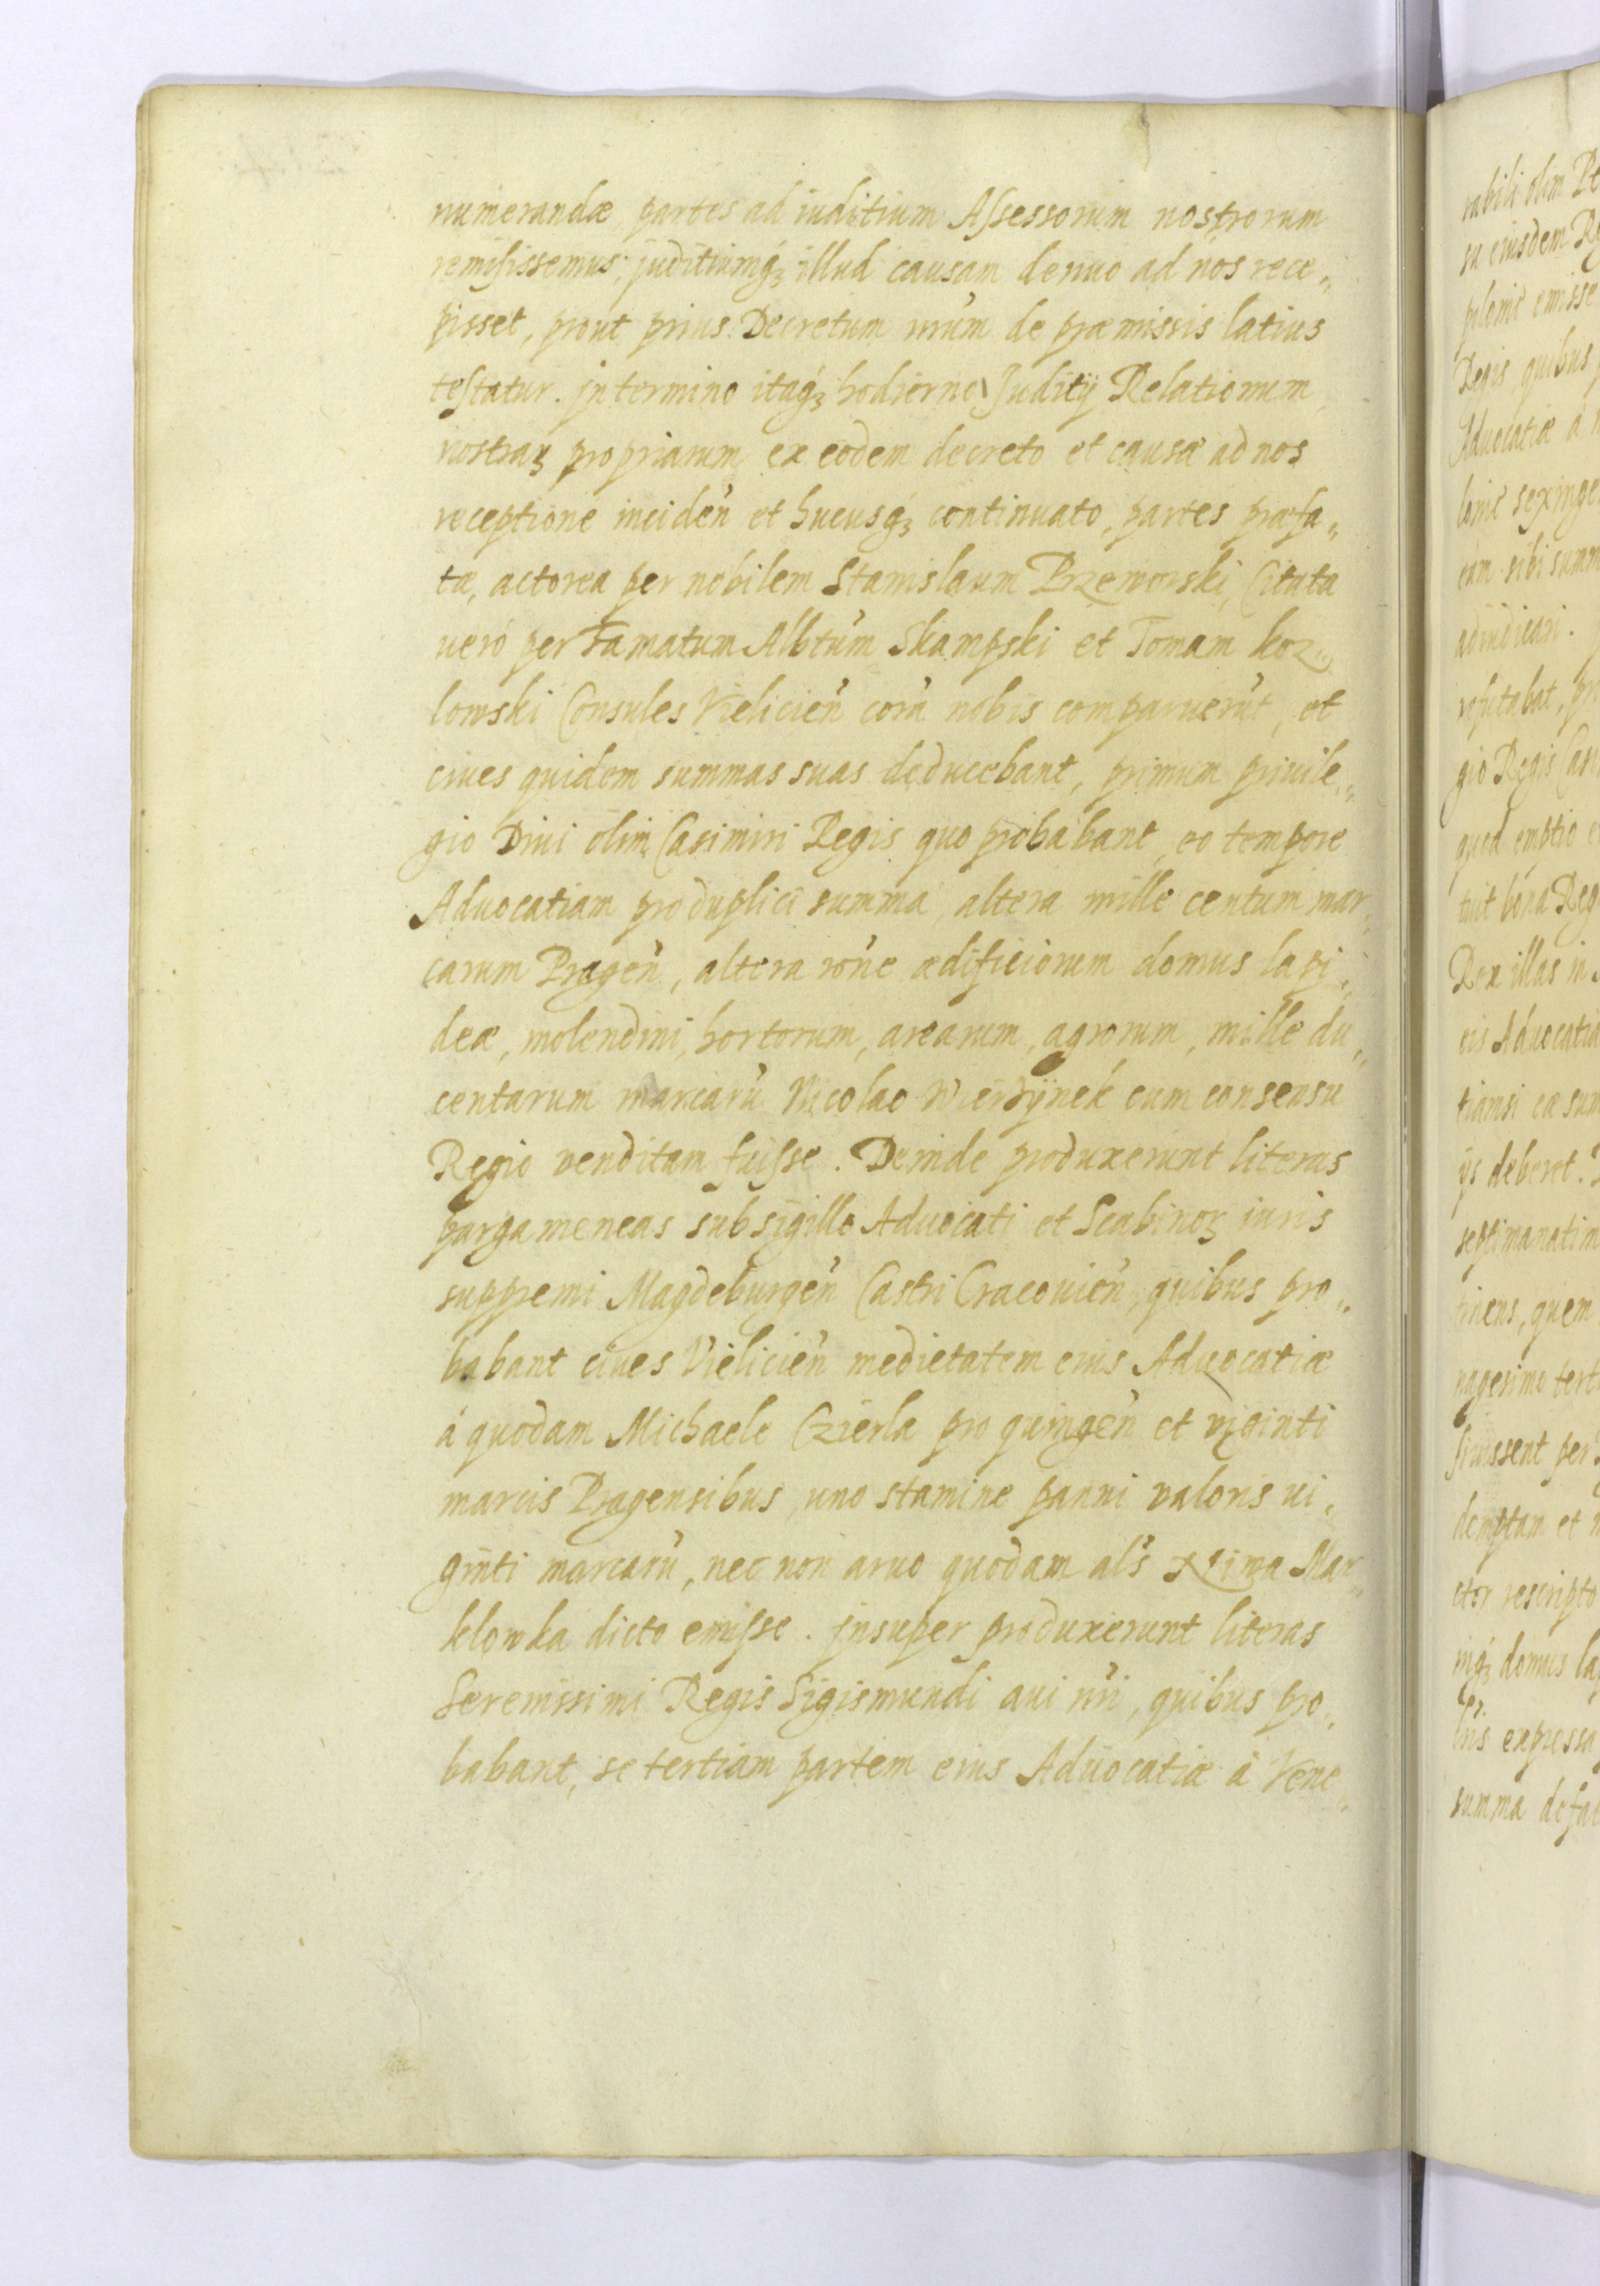 numerandæ partes ad iuditium Assessorum nostrorum
remisissemus: juditiumq́ꝫ illud causam denuo ad nos rece„
pisset, prout prius Decretum nr̃um de præmissis latius
testatur. jn termino itaq́ꝫ hodierno Juditÿ Relationum
nostraꝝ propriarum ex eodem decreto et causæ ad nos
receptione inciden̄ et hucusq́ꝫ continuato, partes præfa„
tæ, actorea per nobilem Stanislaum Przeworski, Citata
veró per Famatum Albtūm Skampski et Tomam koz„
lowski Consules Vielicien̄ corā nobis comparuerūt, et
ciues quidem summas suas deducebant, primum priuile„
gio Diui olim Casimiri Regis quo probabant, eo tempore
Aduocatiam pro duplici summa, altera mille centum mar„
carum Pragen̄, altera rōne ædificiorum domus lapi„
deæ, molendini, hortorum, arearum, agrorum, mille du„
centarum marcarū Nicolao Wierzÿnek cum consensu
Regio venditam fuisse. Deinde produxerunt literas
pargameneas sub sigillo Aduocati et Scabinoꝝ iuris
suppremi Magdeburgen̄ Castri Cracouien̄, quibus pro„
babant ciues Vielicien̄ medietatem eius Aduocatiæ
á quodam Michaele Czierla pro quingen̄ et viginti
marcis Pragensibus, uno stamine panni valoris ui„
ginti marcarū, nec non aruo quodam al̄s Niwa Mar„
klowka dicto emisse. jnsuper produxerunt literas
Serenissimi Regis Sigismundi aui nr̄i, quibus pro„
babant, se tertiam partem eius Aduocatiæ á Vene„
rabili olim
su eiusdem
emisse
Regis, quibus
Aduocatiæ á
eam sibi
adiudicari.
refutabat,
gio Regis
quod emptio
Rex illas in
eis
tiamsi
ÿs deberet.
septimanatim
quem
per
et
rescripto
domus
expressa
summa